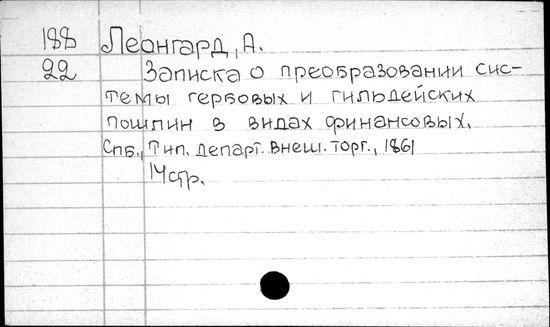 188 Леонгард, А.
22 Записка о преобразовании сис-
темы гербовых и гильдейских
пошлин в видах финансовых.
Спб., Тип. департ. внеш. торг., 1861
14 стр.